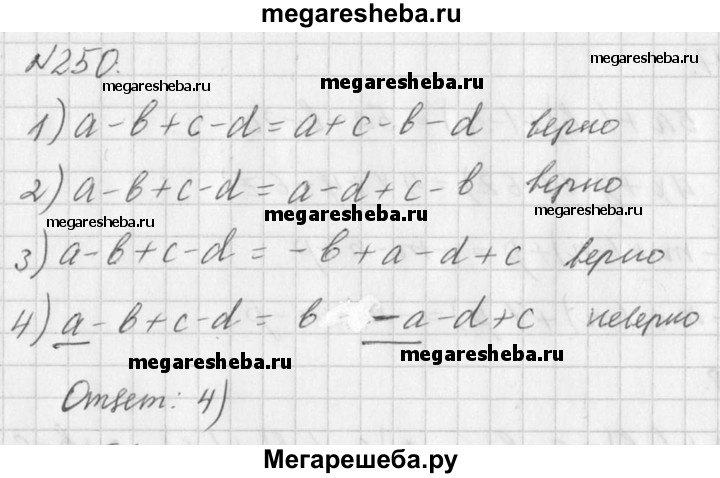 megaresheba.ru
№250.
megaresheba.ru
megaresheba.ru
megaresheba.ru
1) a-b+c-d=a+c-b-d верно
2) a-b+c-d=a-d+c-b верно
megaresheba.ru
megaresheba.ru
megaresheba.ru
3) a-b+c-d=-b+a-d+c верно
4) a-b+c-d=b-a-d+c неверно
megaresheba.ru
megaresheba.ru
Ответ: 4)
Мегарешеба.ру